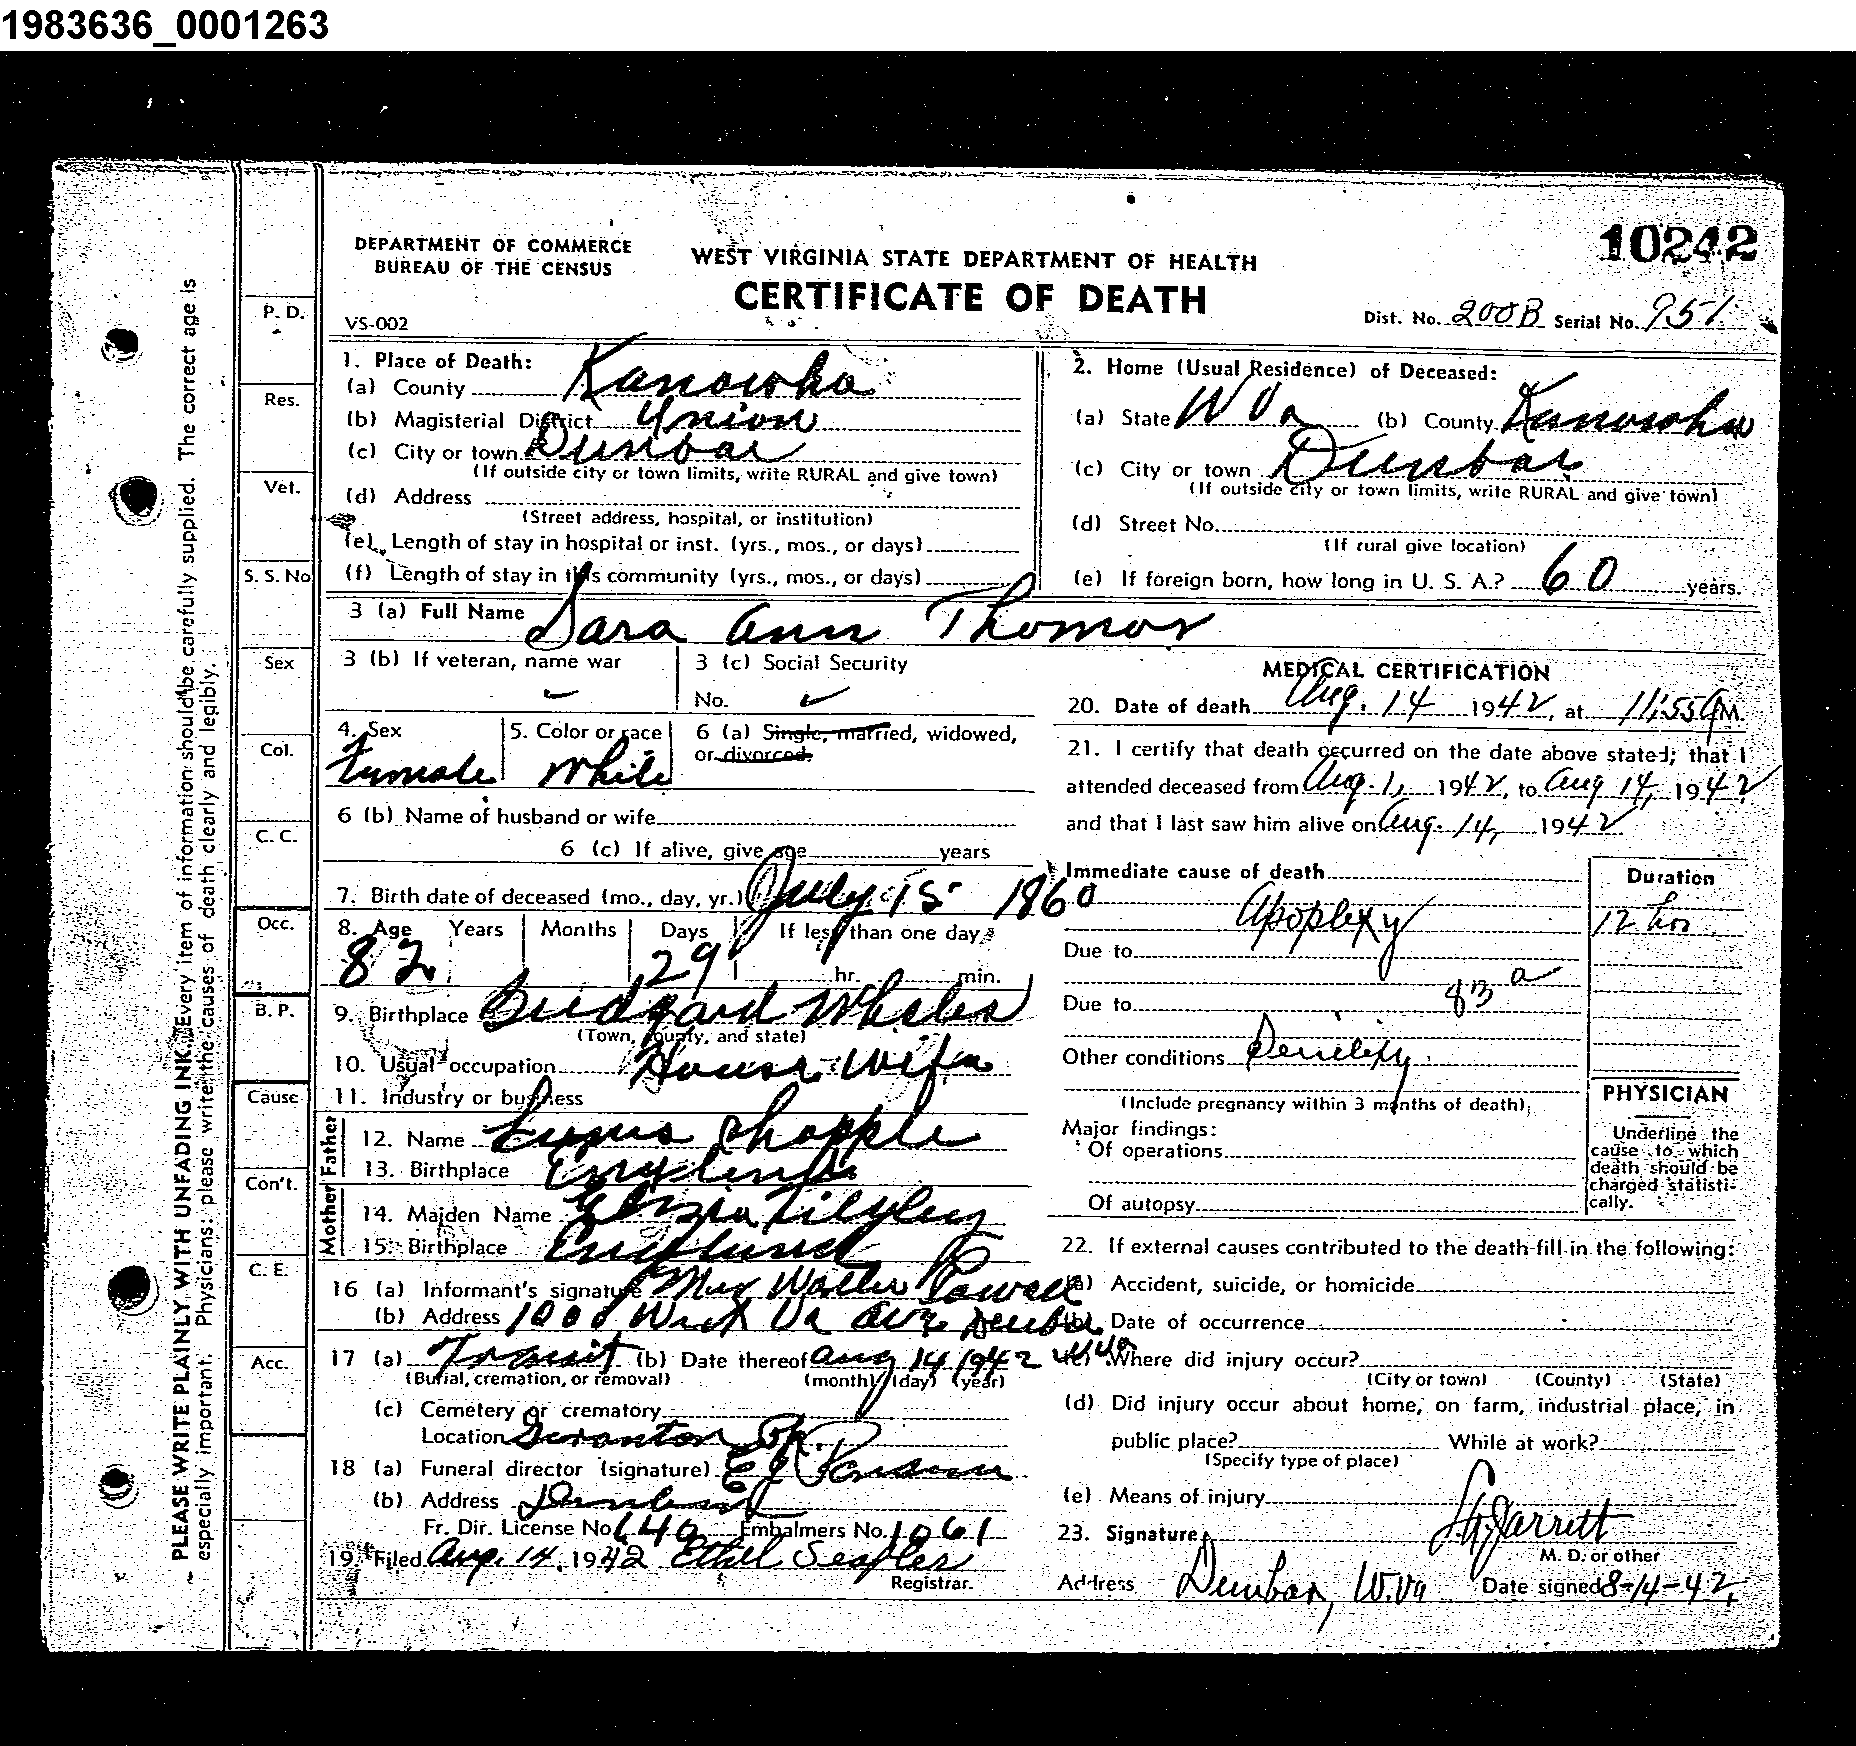 1983636_0001263
10242
DEPARTMENT OF COMMERCE
BUREAU OF THE CENSUS
WEST VIRGINIA STATE DEPARTMENT OF HEALTH
CERTIFICATE OF DEATH
VS-002
Dist. No. 200B Serial No. 951
1. Place of Death:
(a) County Kanawha
(b) Magisterial District Union
(c) City or town Dunbar
(If outside city or town limits, write RURAL and give town)
(d) Address
(Street address, hospital, or institution)
(e) Length of stay in hospital or inst. (yrs., mos., or days)
(f) Length of stay in this community (yrs., mos., or days)
2. Home (Usual Residence) of Deceased:
(a) State W Va (b) County Kanawha
(c) City or town Dunbar
(If outside city or town limits, write RURAL and give town)
(d) Street No.
(If rural give location)
(e) If foreign born, how long in U. S. A.? 60 years.
3 (a) Full Name Sara Ann Thomas
3 (b) If veteran, name war
3 (c) Social Security
No.
4. Sex
Female
5. Color or race
White
6 (a) Single, married, widowed,
or divorced.
6 (b) Name of husband or wife
6 (c) If alive, give age years
7. Birth date of deceased (mo., day, yr.) July 15 1860
8. Age Years Months Days If less than one day
82 29 hr. min.
9. Birthplace
(Town, county, and state)
10. Usual occupation House Wife
11. Industry or business
Father
12. Name
13. Birthplace
Mother
14. Maiden Name
15. Birthplace England
16 (a) Informant's signature Mrs Walter Powell
(b) Address 1008 West Va Ave Dunbar W Va
17 (a) Transit (b) Date thereof Aug 14 1942
(Burial, cremation, or removal) (month) (day) (year)
(c) Cemetery or crematory
Location Scranton Pa.
18 (a) Funeral director (signature)
(b) Address
Fr. Dir. License No. 640 Embalmers No. 1061
19. Filed Aug. 14, 1942 Ethel
Registrar.
MEDICAL CERTIFICATION
20. Date of death Aug. 14 1942, at 11:55 A M.
21. I certify that death occurred on the date above stated; that I
attended deceased from Aug. 1, 1942, to Aug 14, 1942
and that I last saw him alive on Aug. 14, 1942
Immediate cause of death
Apoplexy
Duration
12 hrs
Due to
83 a
Due to
Other conditions Senility
(Include pregnancy within 3 months of death)
Major findings:
Of operations
Of autopsy
PHYSICIAN
Underline the
cause to which
death should be
charged statisti-
cally.
22. If external causes contributed to the death fill in the following:
(a) Accident, suicide, or homicide
(b) Date of occurrence
(c) Where did injury occur?
(City or town) (County) (State)
(d) Did injury occur about home, on farm, industrial place, in
public place? While at work?
(Specify type of place)
(e) Means of injury
23. Signature Jarrett
M. D. or other
Address Dunbar, W.Va Date signed 8-14-42
P. D.
Res.
Vet.
S. S. No
Sex
Col.
C. C.
Occ.
B. P.
Cause
Con't.
C. E.
Acc.
PLEASE WRITE PLAINLY WITH UNFADING INK. Every item of information should be carefully supplied. The correct age is
especially important. Physicians: please write the causes of death clearly and legibly.